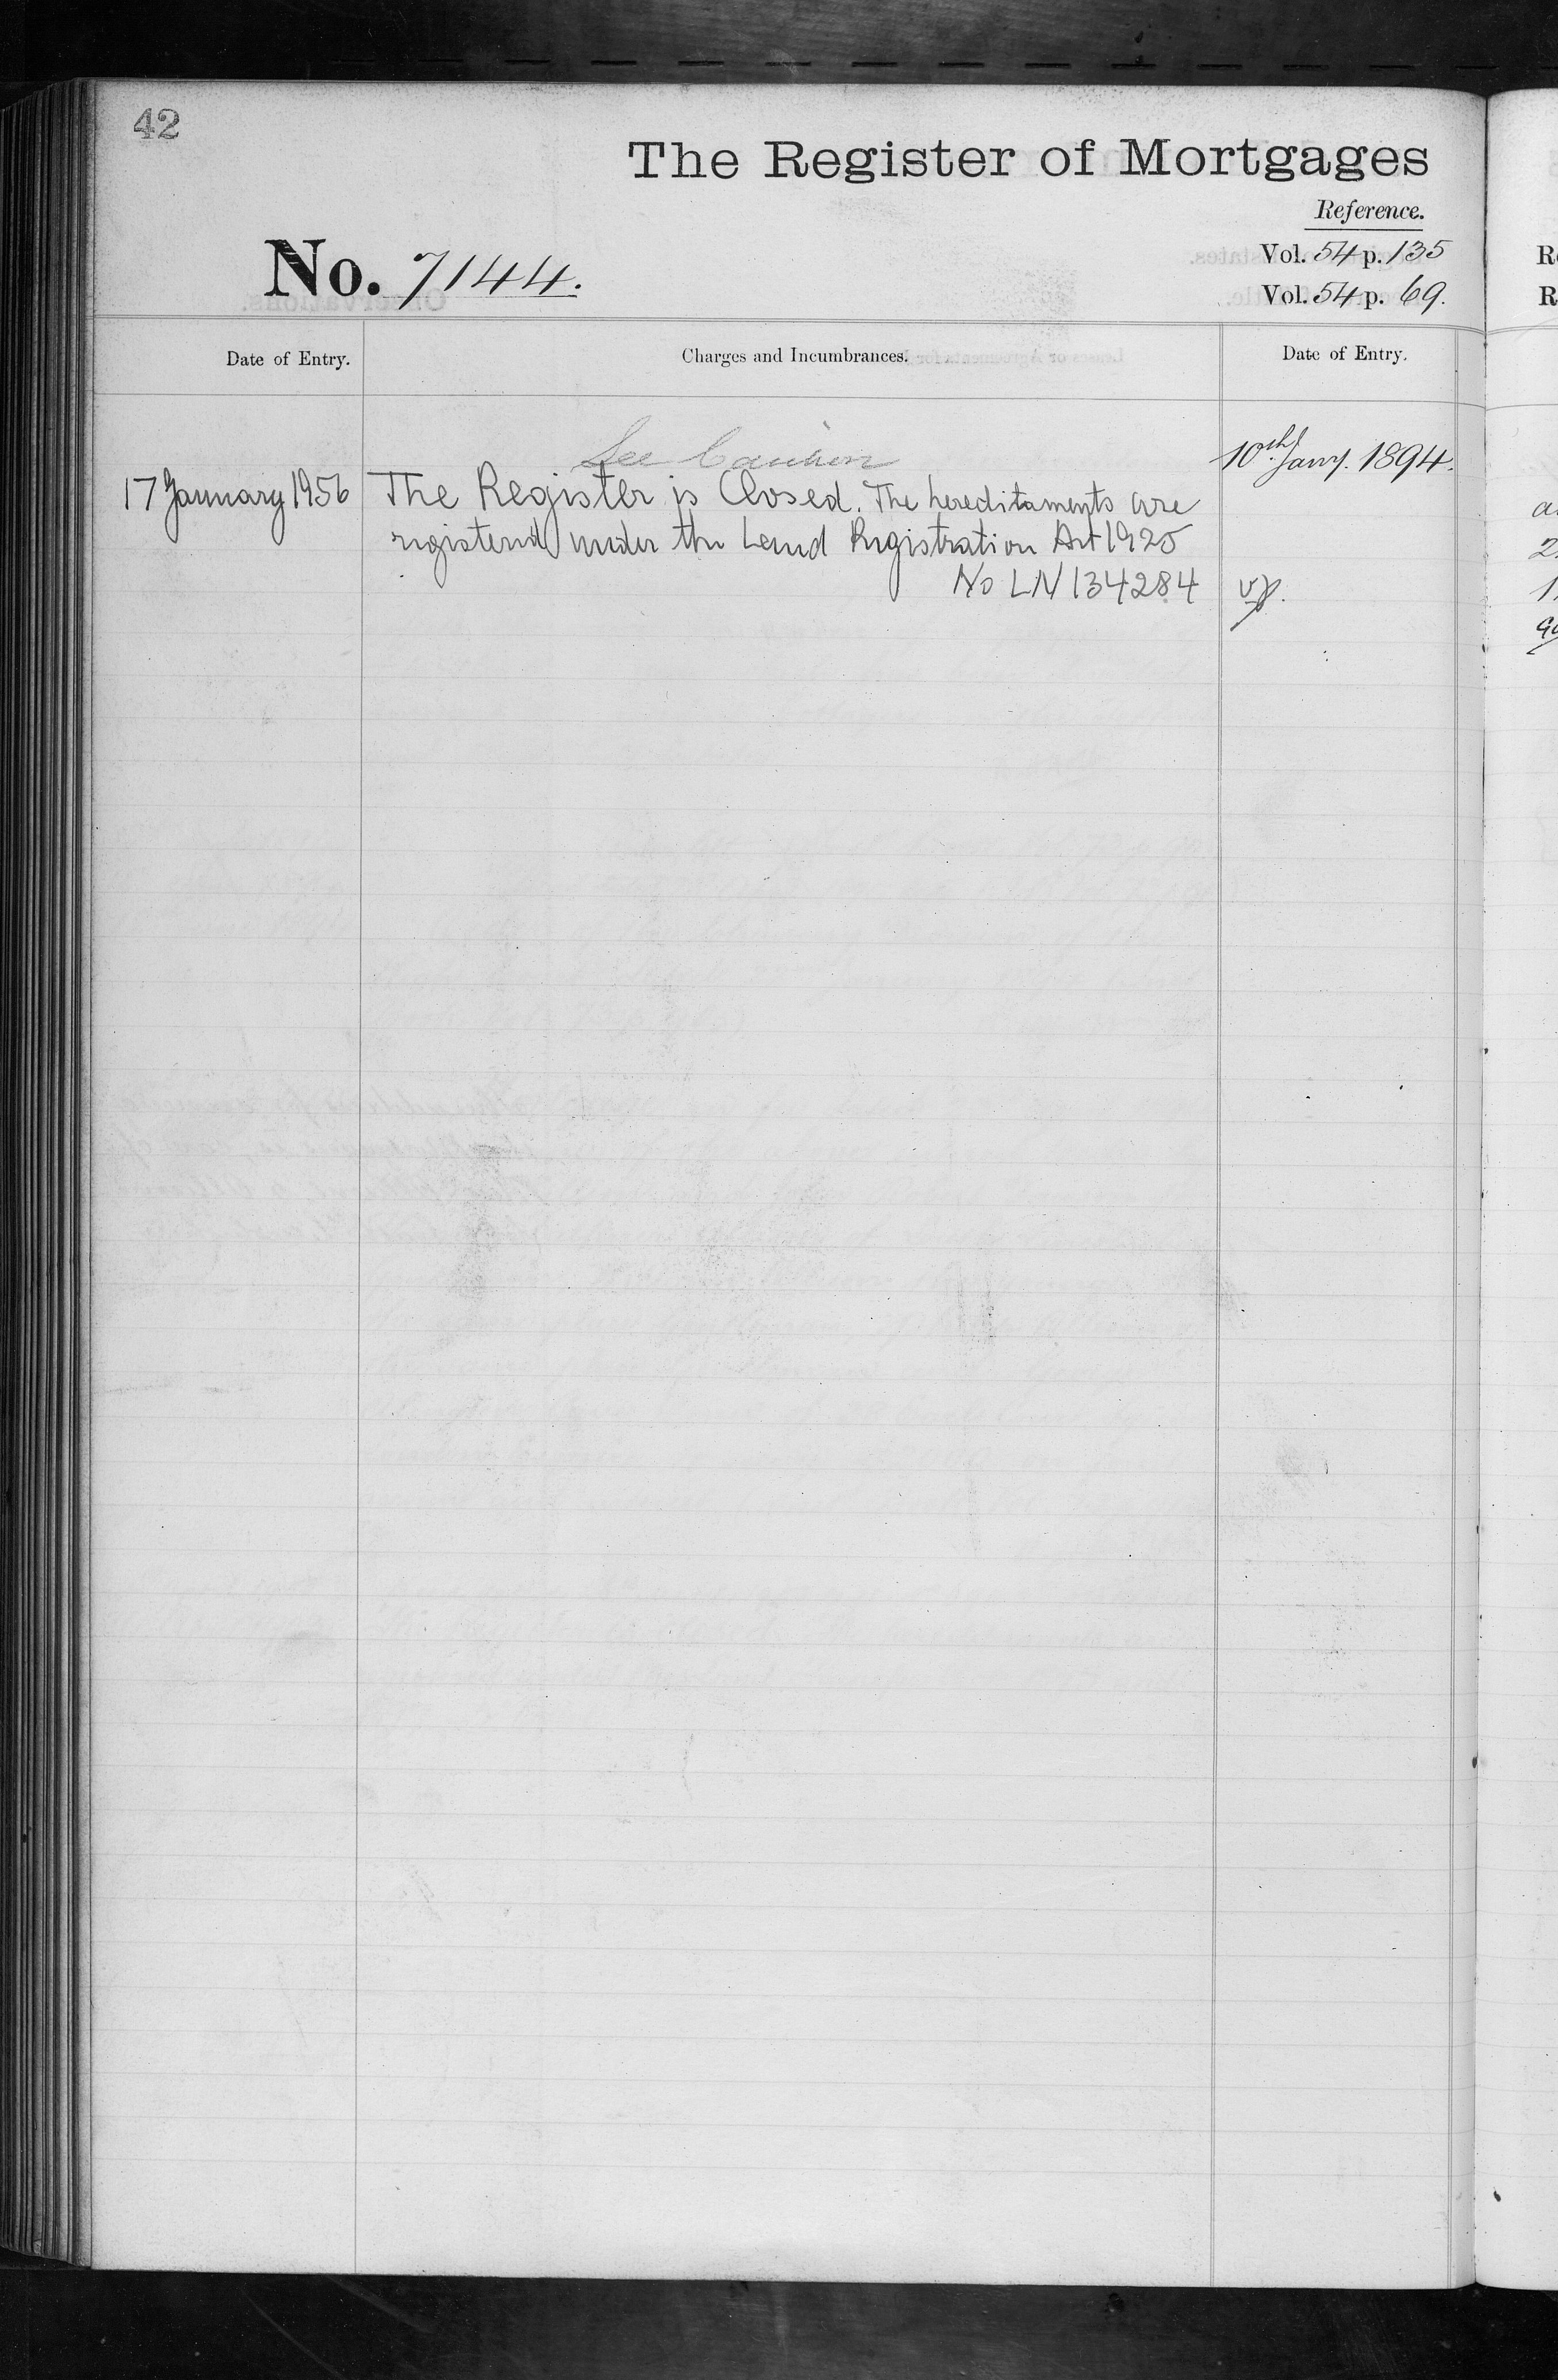 42
The Register of Mortgages
Reference.
No. 7144.
Vol. 54 p. 135
Vol. 54 p. 69.
Date of Entry.
Charges and Incumbrances.
Date of Entry.
See Caution
10th Jany. 1894.
17 January 1956 The Register is Closed. The hereditaments are
registered under the Land Registration Act 1925
No LN 134284